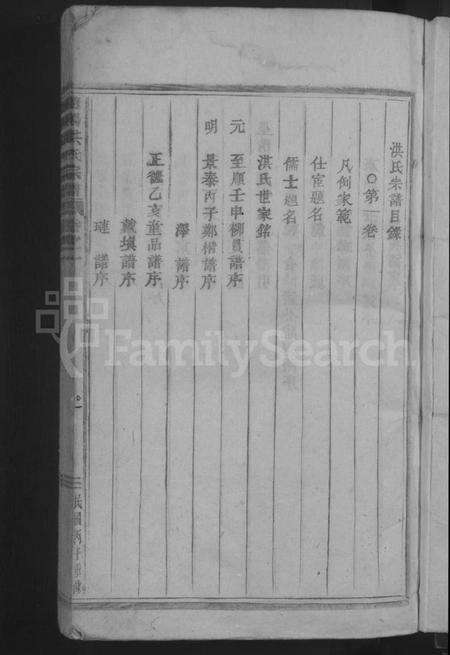 洪氏宗譜目錄
○第一卷
凡例家範
仕宦題名
儒士題名
洪氏世家銘
元 至順壬申柳貫譜序
明 景泰丙子鄭楷譜序
澤 譜序
正德乙亥董品譜序
戴塡譜序
璉 譜序
FamilySearch